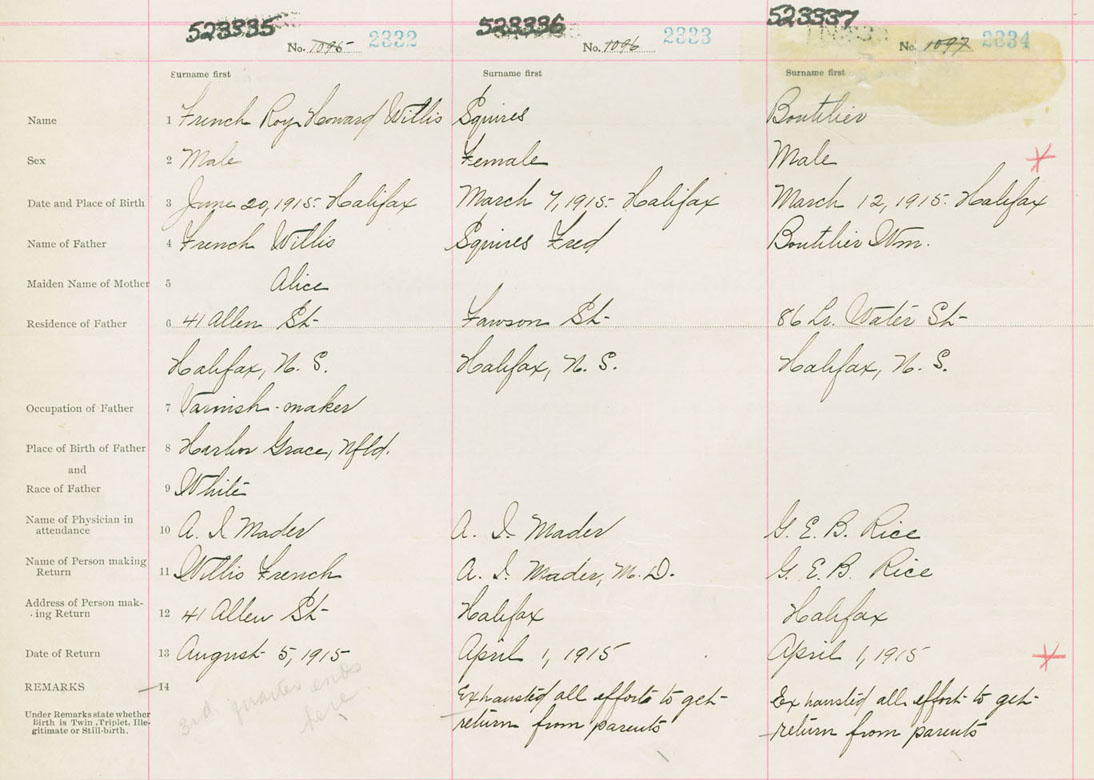 523335 523336 523337
No. 1095 2332 No. 1096 2333 No. 1097 2334
Surname first Surname first Surname first
Name 1 French Roy Howard Willis Squires Boutilier
Sex 2 Male Female Male
Date and Place of Birth 3 June 20, 1915. Halifax March 7, 1915. Halifax March 12, 1915. Halifax
Name of Father 4 French Willis Squires Fred Boutilier Wm.
Maiden Name of Mother 5 Alice
Residence of Father 6 41 Allen St Lawson St 86 Lr. Water St
Halifax, N. S. Halifax, N. S. Halifax, N. S.
Occupation of Father 7 Varnish-maker
Place of Birth of Father 8 Harbor Grace, Nfld.
and
Race of Father 9 White
Name of Physician in
attendance 10 A. I. Mader A. I. Mader G. E. B. Rice
Name of Person making
Return 11 Willis French A. I. Mader, M. D. G. E. B. Rice
Address of Person mak-
ing Return 12 41 Allen St Halifax Halifax
Date of Return 13 August 5, 1915 April 1, 1915 April 1, 1915
REMARKS 14 3rd quarter ends Exhausted all efforts to get Exhausted all effort to get
here return from parents return from parents
Under Remarks state whether
Birth is Twin, Triplet, Ille-
gitimate or Still-birth.